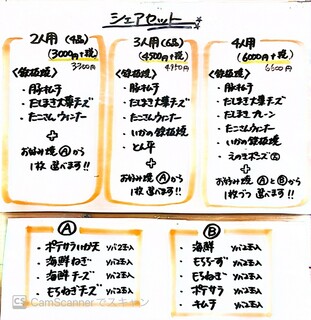 シェアセット
2人用 (4品)
(3000円+税)
3300円
<鉄板焼>
・豚キムチ
・だしまき大葉チーズ
・たこさんウィンナー
+
お好み焼 Ⓐから
1枚 選べます!!
3人用 (6品)
(4500円+税)
4950円
<鉄板焼>
・豚キムチ
・だしまき大葉チーズ
・たこさんウィンナー
・いかの鉄板焼
・とん平
+
お好み焼 Ⓐから
1枚 選べます!!
4人用
(6000円+税)
6600円
<鉄板焼>
・豚キムチ
・だしまき大葉チーズ
・だしまき プレーン
・たこさんウィンナー
・いかの鉄板焼
+
お好み焼 ⒶとⒷから
1枚づつ 選べます!!
Ⓐ
・ポテサラいか天 ソバ2玉入
・海鮮ねぎ ソバ2玉入
・海鮮チーズ ソバ2玉入
・もちねぎチーズ ソバ2玉入
Ⓑ
・海鮮 ソバ2玉入
・もちちーず ソバ2玉入
・もちねぎ ソバ2玉入
・ポテサラ ソバ2玉入
・キムチ ソバ2玉入
CS CamScannerでスキャン